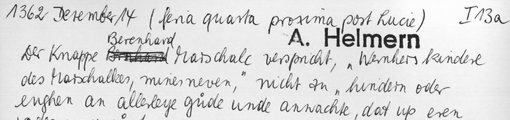 1362 Dezember 14 (feria quarta proxima post Lucie) I 13a
Berenhard
A. Helmern
Der Knappe Bernhard Marschalc verspricht, „Wernhers kindere
des Marschalkes, mines neven," nicht zu „hindern oder
enghen an allerleye gůde unde anwachte, dat up eren